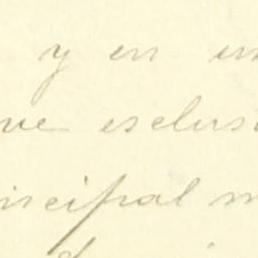 y en un
ve esclus
iscipal m